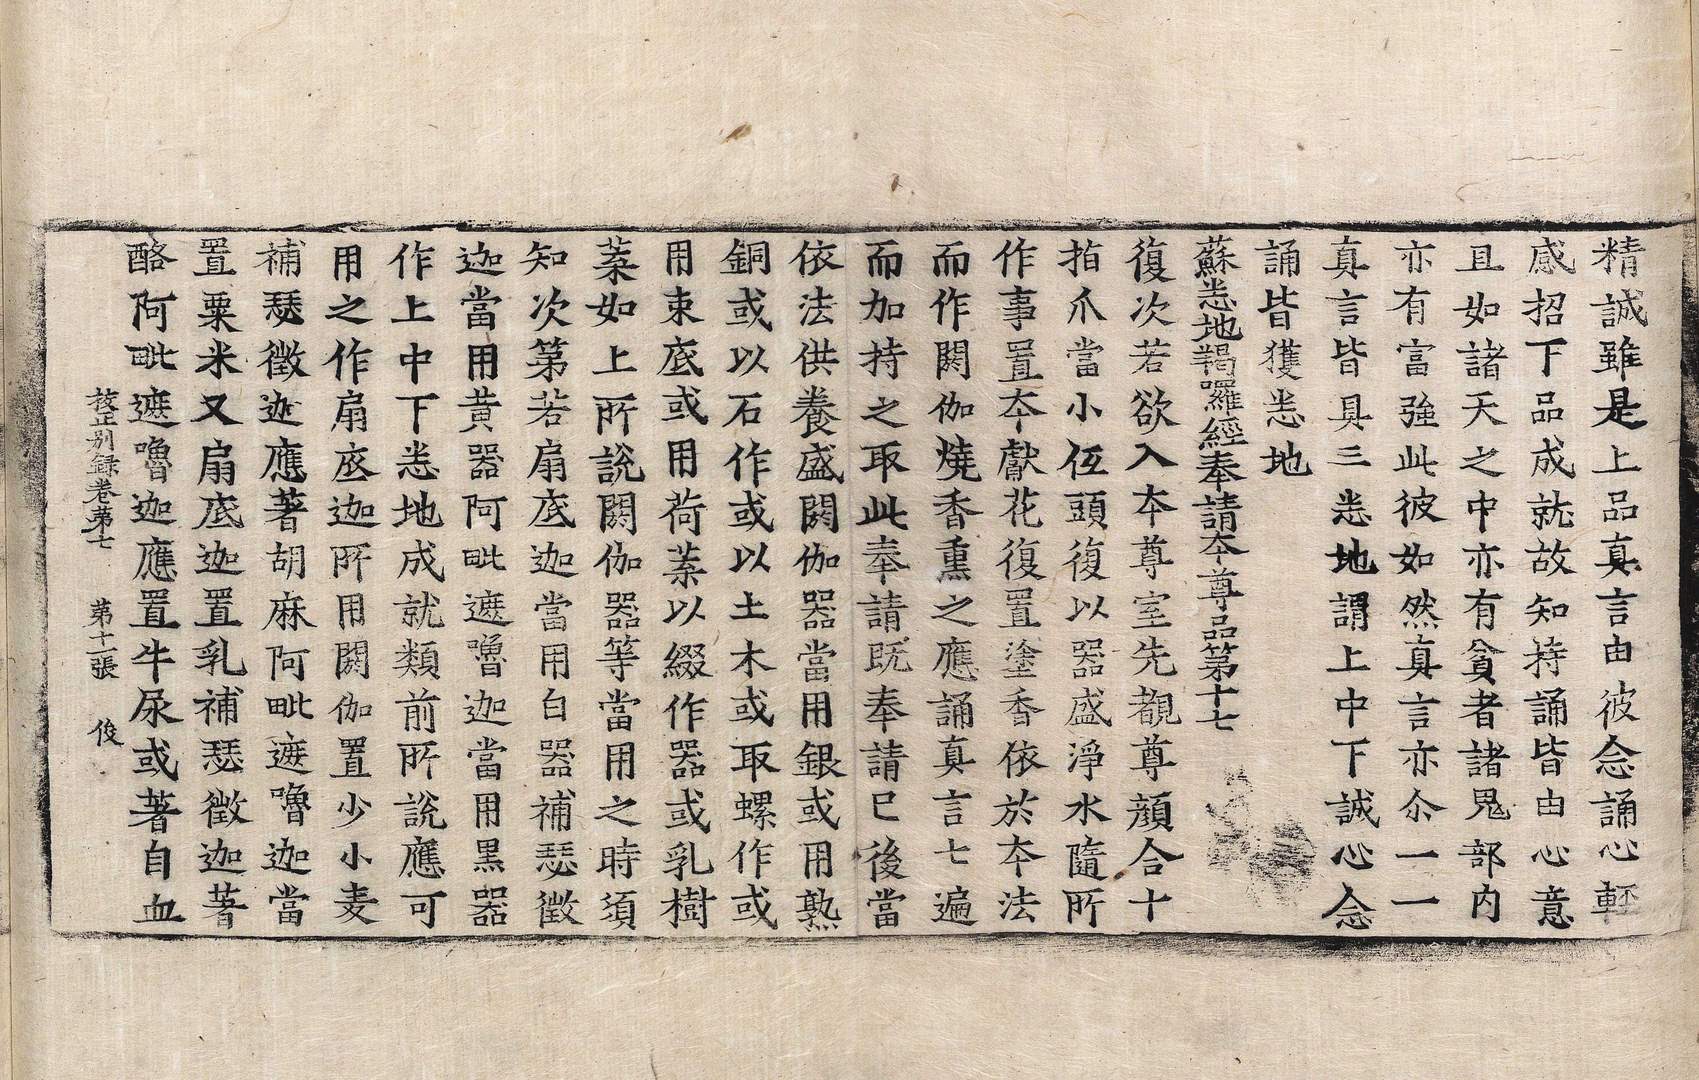 精誠雖是上品真言由彼念誦心輕
感招下品成就故知持誦皆由心意
且如諸天之中亦有貧者諸鬼部内
亦有富強此彼如然真言亦尒一一
真言皆具三悉地謂上中下誠心念
誦皆獲悉地
蘇悉地羯囉經奉請夲尊品第十七
復次若欲入夲尊室先觀尊顔合十
指爪當小伍頭復以器盛淨水隨所
作事置夲獻花復置塗香依於夲法
而作閼伽燒香熏之應誦真言七遍
而加持之取此奉請旣奉請已後當
依法供養盛閼伽器當用銀或用熟
銅或以石作或以土木或取螺作或
用束底或用荷葉以綴作器或乳樹
葉如上所說閼伽器等當用之時須
知次第若扇底迦當用白器補瑟徵
迦當用黄器阿毗遮嚕迦當用黒器
作上中下悉地成就類前所說應可
用之作扇底迦所用閼伽置少小麦
補瑟徵迦應著胡麻阿毗遮嚕迦當
置粟米又扇底迦置乳補瑟徵迦著
酪阿毗遮嚕迦應置牛尿或著自血
挍正别録卷第七 第十一張 俊